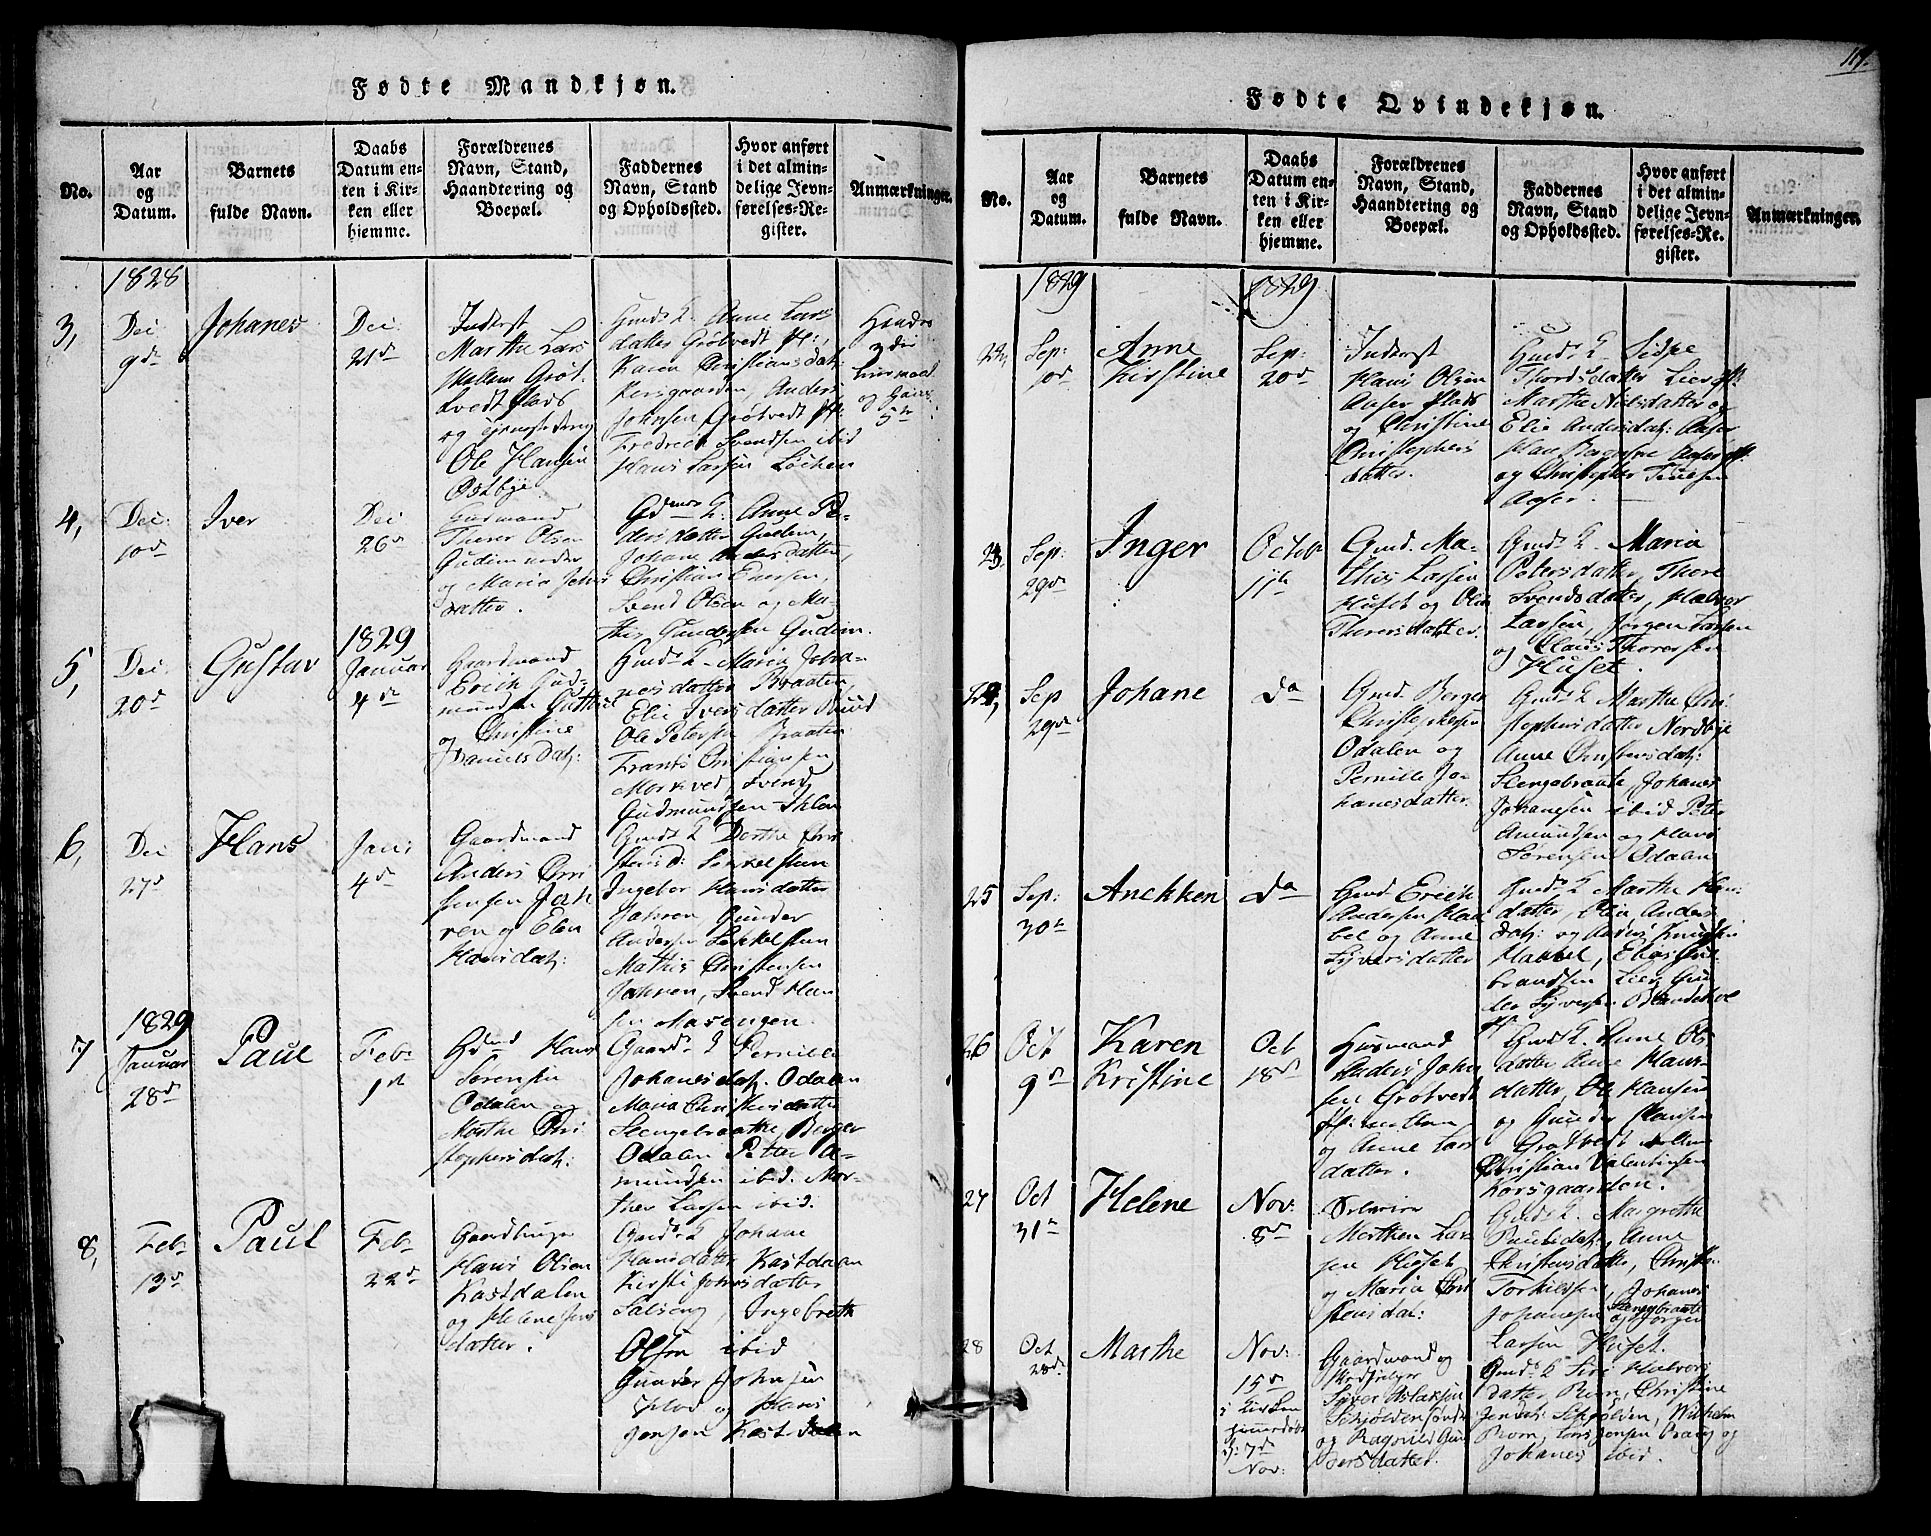 117.
Fødte Mandkjøn.
No.
Aar
og
Datum.
Barnets
fulde Navn.
Daabs
Datum en-
ten i Kir-
ken eller
hjemme.
Forældrenes
Navn, Stand,
Haandtering og
Boepæl.
Faddernes
Navn, Stand
og Opholdssted.
Hvor anført
i det almin-
delige Jevn-
førelses-Re-
gister.
Anmærkninger.
1828
3,
Dec:
9de
Johanes
Dec:
21de
Inderst
Marthe Lars
Grøt-
vedt Plads
og
Ole Hansen
Østbye.
Gmds K Anne Lars
datter Grøtvedt Pl:,
Karen Christiansdat:
Korsgaarden, Anders
Johnsen Grøtvedt Pl:
Fredrik Svendsen ibid
Hans Larsen Løchen
4,
Dec:
10de
Iver
Dec
26de
Gudmand
Thorer Olsen
Gudim nedre
og Maria Jens
datter.
Gdmds K: Anne Pe-
dersdatter Gudim,
Johane Andersdatter,
Christian Enersen,
Svend Olsen og Ma-
this Gundersen Gudim.
5,
Dec:
20de
Gustav
1829
Januar
4de
Gaardmand
Erich Gud-
mundsen
og Christine
Danielsdat:
Gmds K Maria Joha-
nesdatter Braaten
Elie Iversdatter Ruud
Ole Petersen Braaten
Frants Christiansen
Morkved Svend
Gudmundsen
6,
Dec
27de
Hans
Jan:
4de
Gaardmand
Anders Chri
stensen Jah
ren og Elen
Hansdat:
Gmds K Dorthe Chri
stensd:
Ingebor Hansdatter
Jahren, Gunder
Andersen
Mathis Christensen
Jahren, Svend Han
sen Masengen.
1829
7
Januar
28de
Paul
Feb:
1st
Gdmd Hans
Sørensen
Odalen og
Marthe Chri
stophersdat:
Gaards K Pernille
Johanesdat: Odalen
Maria Christensdatter
Slengebraathe, Berger
Odalen Petter A-
mundsen ibid. Mar-
then Larsen ibid.
8,
Feb:
13de
Paul
Feb:
22de
Gaardbruger
Hans Olsen
Kastdalen
og Helene Jens
datter.
Gaards K Johane
Hansdatter Kastdalen
Kirsti Johnsdatter
Salseng, Ingebreth
Olsen ibid
Gunder Johnsen
Flod og Hans
Jensen Kastdalen
Fødte Qvindekjøn.
No.
Aar
og
Datum.
Barnets
fulde Navn.
Daabs
Datum en-
ten i Kir-
ken eller
hjemme.
Forældrenes
Navn, Stand,
Haandtering og
Boepæl.
Faddernes
Navn, Stand
og Opholdssted.
Hvor anført
i det almin-
delige Jevn-
førelses-Re-
gister.
Anmærkningen
1829
1829
22,
Sep:
10de
Anne
Kirstine
Sep:
20de
Inderst
Hans Olsen
Aaser Plads
og Christine
Christophers
datter.
Gmds K Sidse
Thordsdatter Lier
Marthe Nilsdatter og
Elie Andersdat: Aaser
og Christopher
Aaser.
23,
Sep:
29de
Inger
Octob
11te
Gmd. Ma-
this Larsen
Huset og Olia
Thorersdatter
Gmds K Maria
Petersdatter, Thore
Svendsdatter, Halvor
Larsen, Jørgen Larsen
og Claus Thoresen
Huset.
24,
Sep
29de
Johane
Da
Gmd. Berger
Christophersen
Odalen og
Pernille Jo
hanesdatter
Gmds K Marthe Chri
stophersdatter Nordbye
Anne Christensdat:
Slengebraate, Johanes
Johanesen ibid Peter
Amundsen og Hans
Sørensen Odalen
25
Sep:
30te
Anekken
Da
Gmd Erich
Andersen Hau
bel og Anne
Syversdatter
Gmds K Marthe Han:
datter, Olia Anders
dat: og Anders Knudsen
Habbel, Elias Gul-
brandsen Lier,
Syversen
26
Oct
9de
Karen
Kristine
Oct
18de
Husmand
Anders Joha
sen Grøtvedt
og Anne Lars
datter.
Gmds K. Anne Ols
datter Anne Hans-
datter, Ole Hansen
og Gunder Hansen
Grøtvedt
Christian Valentinsen
Korsgaarden.
27
Oct
31te
Helene
Nov:
8de
Marthen Lar
sen Huset
og Maria Chri
stensdat:
Gmds K. Margrethe
Paulsdat:, Anne
Christensdatter, Christe.
Torkildsen, Johanes
Johanesen Slengebraate
og Jørgen
Larsen Huset.
28
Oct
28de
Marthe
Nov:
15de
i Kirken
hjemmedøbt
d: 7de
Nov:
Gaardmand og
Syver Aslaksen
Schjølden søndre
og Ragnild Gun
dersdatter.
Gmds K Siri Halvors
datter Rom, Christine
Jensdat: Schjølden, Wilhelm
Rom, Lars Jensen Prang og
Johanes ibid.